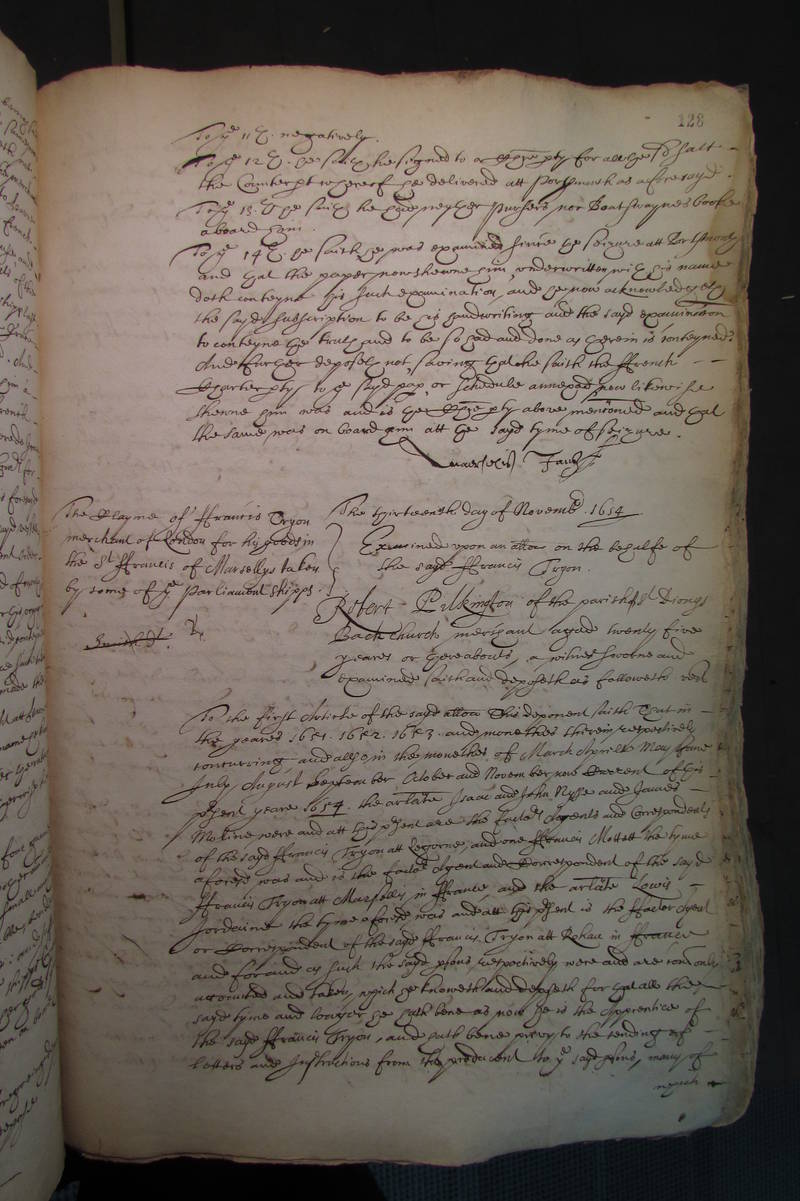 128
To ye 11th. negatively.
To ye 12th. he saith he signed to a charter pty for all the sd salt
the Counterpt whereof he delivered att Portsmouth as aforesayd.
To ye 13. th he saith he had neyther pursers nor Boatswaynes booke
aboard him.
To ye 14th he saith he was examined since the seizure att Portsmouth
and that the paper now shewne him, underwritten with his name
doth conteyne his such examination, and he now acknowledgeth
the sayd subscription to be his handwriting and the sayd examination
to conteyne the truth and to be so had and done as therein is conteyned.
And further deposeth not, saving that he saith the ffrench
Charter pty to ye sayd pap or schedule annexed now likewise
shewne him was and is the Charter pty above mentioned and that
the same was on board him att the sayd tyme of seizure.
The Clayme of ffrancis Tryon
merchant of London for his goods in
the St ffrancis of Marsellys taken
by some of ye Parliament shipps.
The thirteenth day of Novemb. 1654
Examined upon an allon on the behalfe of
the sayd ffrancis Tryon.
Robert Pilkington of the parish of St Dionys
Backchurch merchant aged twenty five
yeares or thereabouts, a witnes sworne and
examined saith and deposeth as followeth vizt
To the first Article of the sayd allon This deponent saith That in
the yeares 1651. 1652. 1653. and monethes therein respectively
concurring and allso in the monethes of March Aprill May June
July August September October and November now Current of this
psent yeare 1654 the arlate Isaac and John Nysse and James
Moline were and att this psent are the factors Agents and Correspondents
of the sayd ffrancis Tryon att Legorne, and one ffrancis Mottett the tyme
aforesd was and is the factor Agent and Correspondent of the sayd
ffrancis Tryon att Marsellys in ffrance, and the arlate Lewis
Jordaine the tyme aforesd was and att this psent is the ffactor Agent
or Correspondent of the sayd ffrancis Tryon att Rohan in ffrance
and for and as such the sayd psons respectively were and are comonly
accounted and taken, which he knoweth and deposeth for that all the
sayd tyme and longer he hath bene as now he is the Apprentice of
the sayd ffrancis Tryon, and hath bene privy to the sending of
letters and Instructions from the producent to ye sayd psons, many of
which